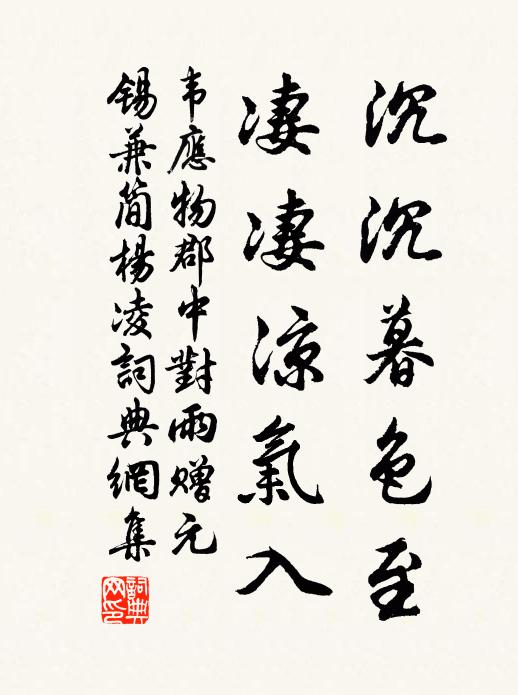 沉沉暮色至
凄凄涼氣入
韦應物郡中對雨贈元
锡兼简楊凌詞典網集
詞典网印